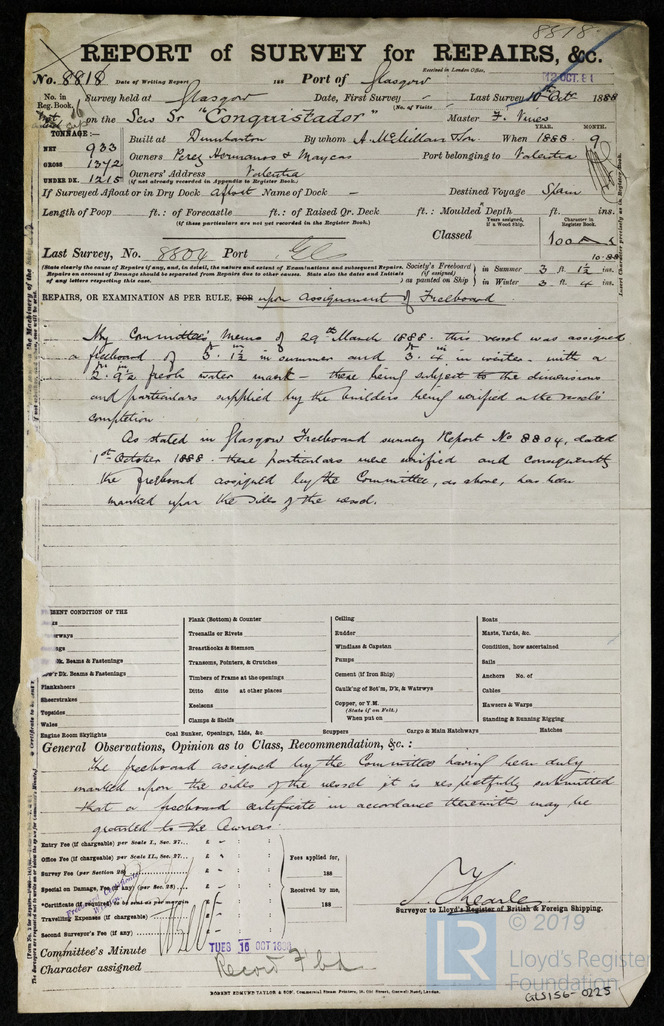 8818
REPORT of SURVEY for REPAIRS, &c.
No. 8818 Date of Writing Report 188 Port of Glasgow Received in London Office,
12 OCT. 81
No. in Reg. Book. Survey held at Glasgow Date, First Survey – Last Survey 10th Oct 1888
(No. of Visits
on the Scw Sr "Conquistador" Master F. Vives
TONNAGE:—
NET 933
GROSS 1372
UNDER DK. 1215
Built at Dumbarton By whom A. McMillan & Son When 1888. 9
YEAR. MONTH.
Owners Perez Hermanos & Mayeas Port belonging to Valentia
Owners' Address Valentia
(if not already recorded in Appendix to Register Book.)
If Surveyed Afloat or in Dry Dock Afloat Name of Dock – Destined Voyage Spain
Length of Poop ft.: of Forecastle ft.: of Raised Qr. Deck ft.: Moulded Depth ft. ins.
(if these particulars are not yet recorded in the Register Book.)
Years assigned, if a Wood Ship. Character in Register Book.
Classed 100 A
10.88
Last Survey, No. 8804 Port Gls
(State clearly the cause of Repairs if any, and, in detail, the nature and extent of Examinations and subsequent Repairs. Repairs on account of Damage should be separated from Repairs due to other causes. State also the Dates and Initials of any letters respecting this case.
Society's Freeboard (if assigned) as painted on Ship
in Summer 3 ft. 1½ ins.
in Winter 3 ft. 4 ins.
REPAIRS, OR EXAMINATION AS PER RULE, FOR upon assignment of Freeboard
By Committee's Memo of 29th March 1888. this vessel was assigned
a freeboard of 3ft 1½in in summer and 3ft 4in in winter. with a
2ft 9½in fresh water mark – these being subject to the dimensions
and particulars supplied by the builders being verified on the vessels
completion
As stated in Glasgow Freeboard survey Report No 8804, dated
1st October 1888. these particulars were verified and consequently
the freeboard assigned by the Committee, as above, has been
marked upon the sides of the vessel.
PRESENT CONDITION OF THE
Dk. Beams & Fastenings
Low'r Dk. Beams & Fastenings
Planksheers
Sheerstrakes
Topsides
Wales
Engine Room Skylights
Plank (Bottom) & Counter
Treenails or Rivets
Breasthooks & Stemson
Transoms, Pointers, & Crutches
Timbers of Frame at the openings
Ditto ditto at other places
Keelsons
Clamps & Shelfs
Coal Bunker, Openings, Lids, &c.
Ceiling
Rudder
Windlass & Capstan
Pumps
Cement (if Iron Ship)
Caulk'ng of Bot'm, D'k, & Watrwys
Copper, or Y.M.
(State if on Felt.)
When put on
Scuppers
Boats
Masts, Yards, &c.
Condition, how ascertained
Sails
Anchors No. of
Cables
Hawsers & Warps
Standing & Running Rigging
Cargo & Main Hatchways Hatches
General Observations, Opinion as to Class, Recommendation, &c.:
The freeboard assigned by the Committee having been duly
marked upon the sides of the vessel it is respectfully submitted
that a freeboard certificate in accordance therewith may be
granted to the Owners.
Entry Fee (if chargeable) per Scale I., Sec. 27... £
Office Fee (if chargeable) per Scale II., Sec. 27... £
Survey Fee (per Section 28) £
Special on Damage, Fee (if any) (per Sec. 28) £
Certificate (if required) to be sent as per margin £
Travelling Expenses (if chargeable) £
Second Surveyor's Fee (if any) £
Fees applied for,
188
Received by me,
188
Freeboard Certificate
Written
Surveyor to Lloyd's Register of British & Foreign Shipping.
Committee's Minute TUES 16 OCT 1888
Character assigned Record Fbd
ROBERT EDMUND TAYLOR & SON, Commercial Steam Printers, 19, Old Street, Goswell Road, London.
© 2019
LR
Lloyd's Register
Foundation
GLS156-0225